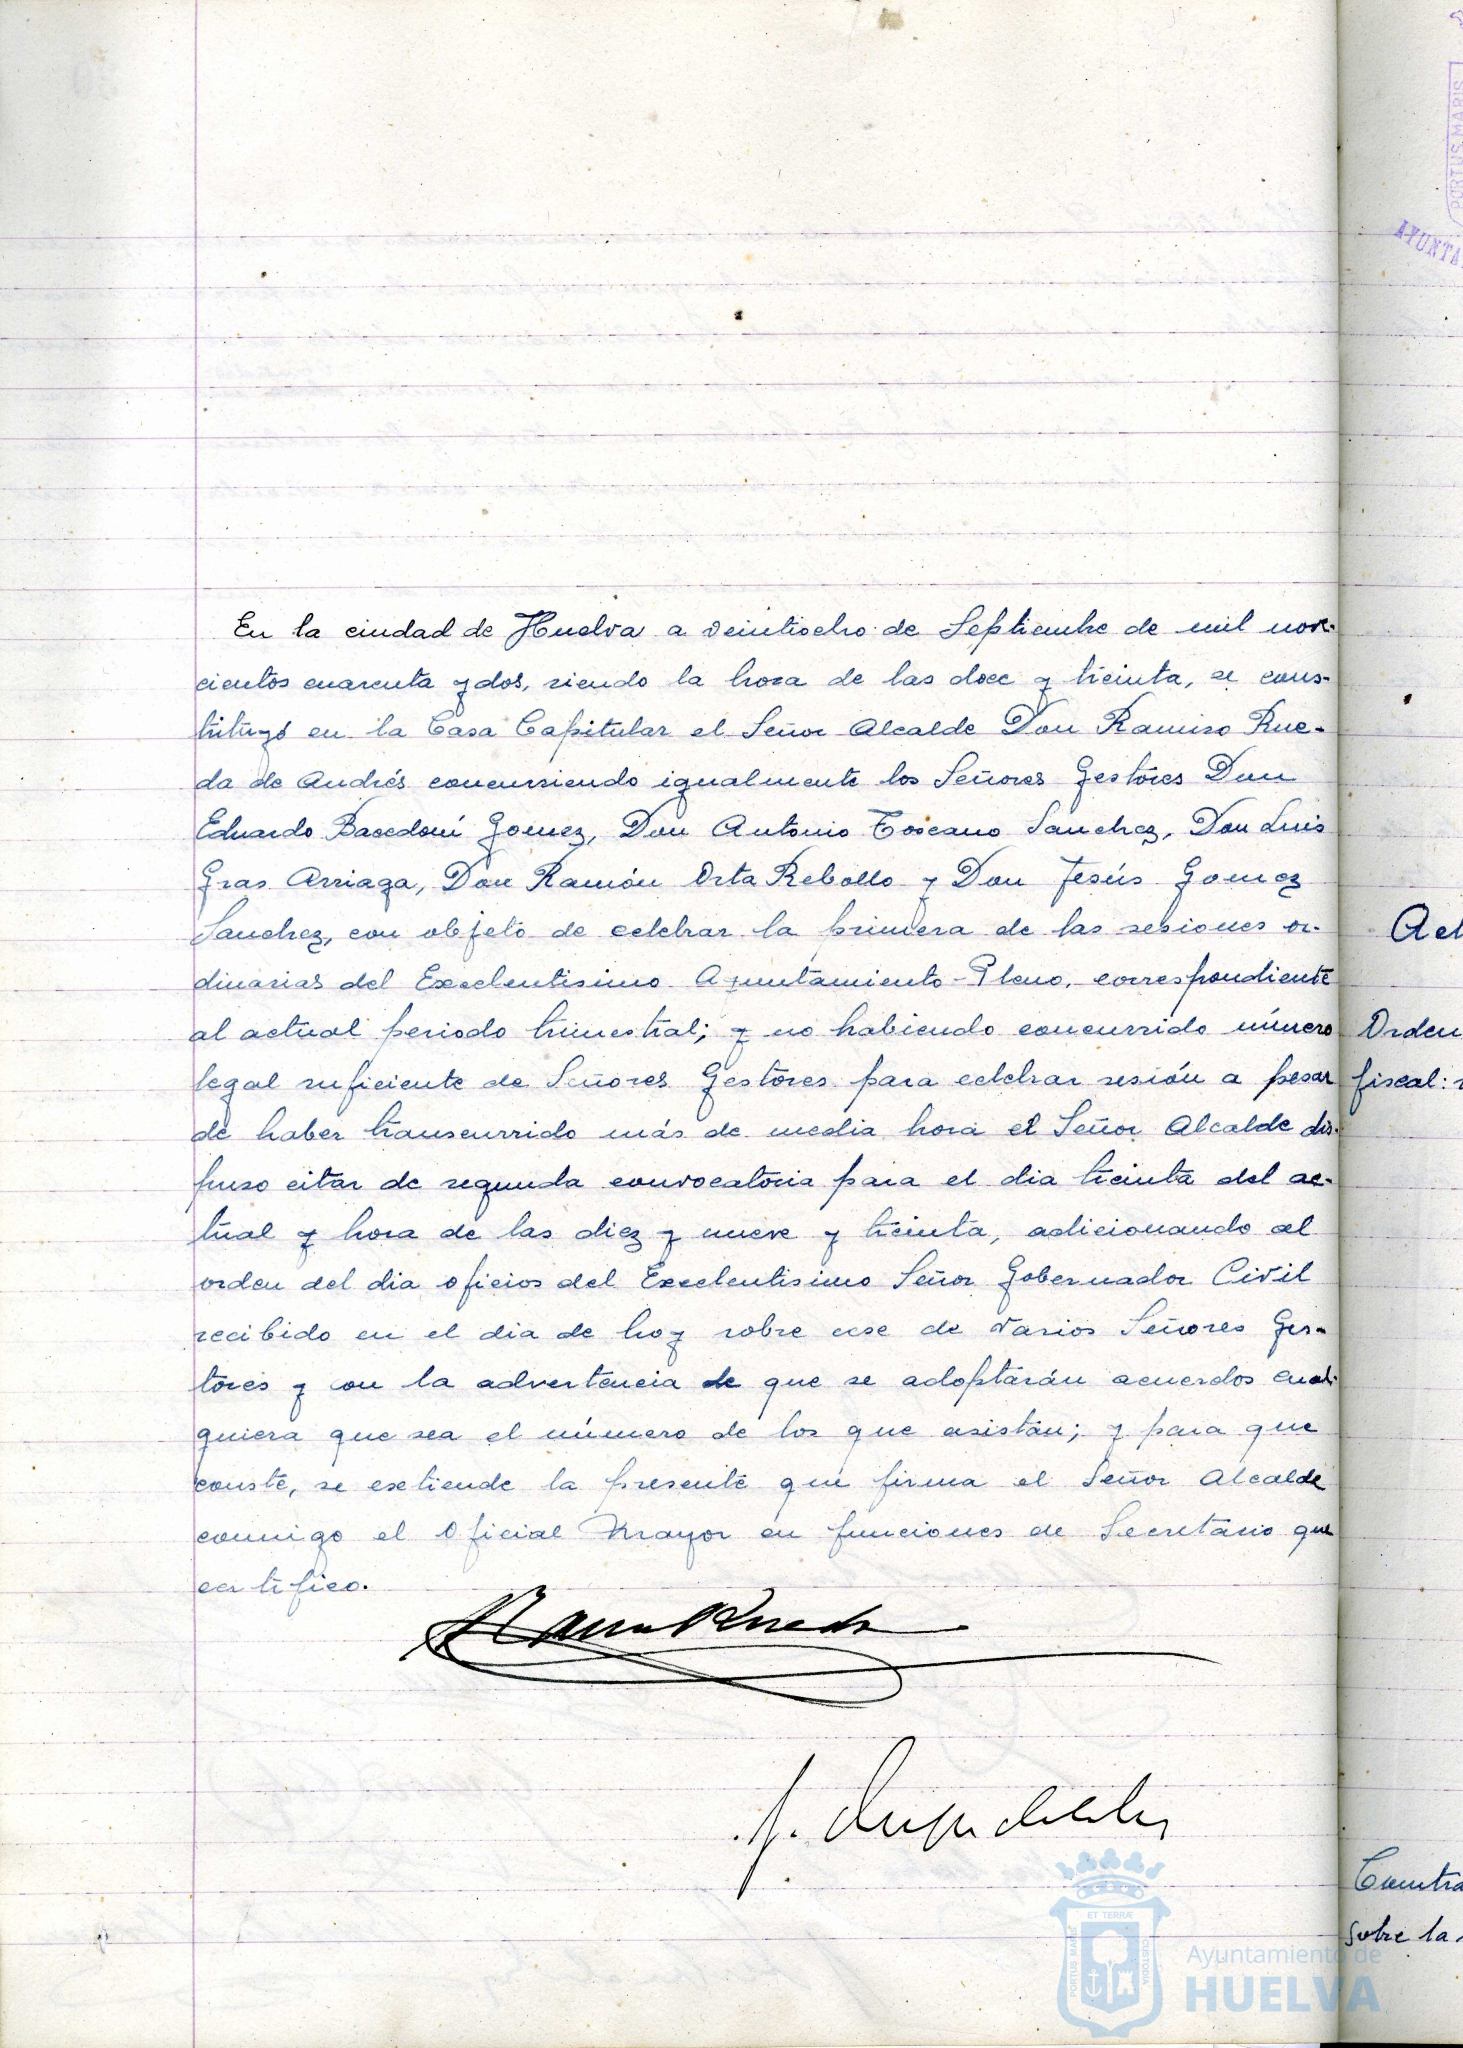 En la ciudad de Huelva a veintiocho de Septiembre de mil nove-
cientos cuarenta y dos, siendo la hora de las doce y treinta, se cons-
tituyó en la Casa Capitular el Señor Alcalde Don Ramiro Rue-
da de Andrés concurriendo igualmente los Señores Gestores Don
Eduardo Bacedoní Gomez, Don Antonio Toscano Sanchez, Don Luis
Gras Arriaga, Don Ramón Orta Rebollo y Don Jesús Gomez
Sanchez, con objeto de celebrar la primera de las sesiones or-
dinarias del Excelentisimo Ayuntamiento-Pleno, correspondiente
al actual periodo trimestral; y no habiendo concurrido número
legal suficiente de Señores Gestores para celebrar sesión a pesar
de haber transcurrido más de media hora el Señor Alcalde dis-
puso citar de segunda convocatoria para el dia treinta del ac-
tual y hora de las diez y nueve y treinta, adicionando al
orden del dia oficios del Excelentisimo Señor Gobernador Civil
recibido en el dia de hoy sobre cese de varios Señores Ges-
tores y con la advertencia de que se adoptarán acuerdos cual-
quiera que sea el número de los que asistan; y para que
conste, se extiende la presente que firma el Señor Alcalde
conmigo el Oficial Mayor en funciones de Secretario que
certifico.
Ramiro Rueda
Orden
fiscal:
sobre la
PORTUS MARIS
AYUNTA
ET TERRÆ
PORTUS MARIS
CUSTODIA
Ayuntamiento de
HUELVA